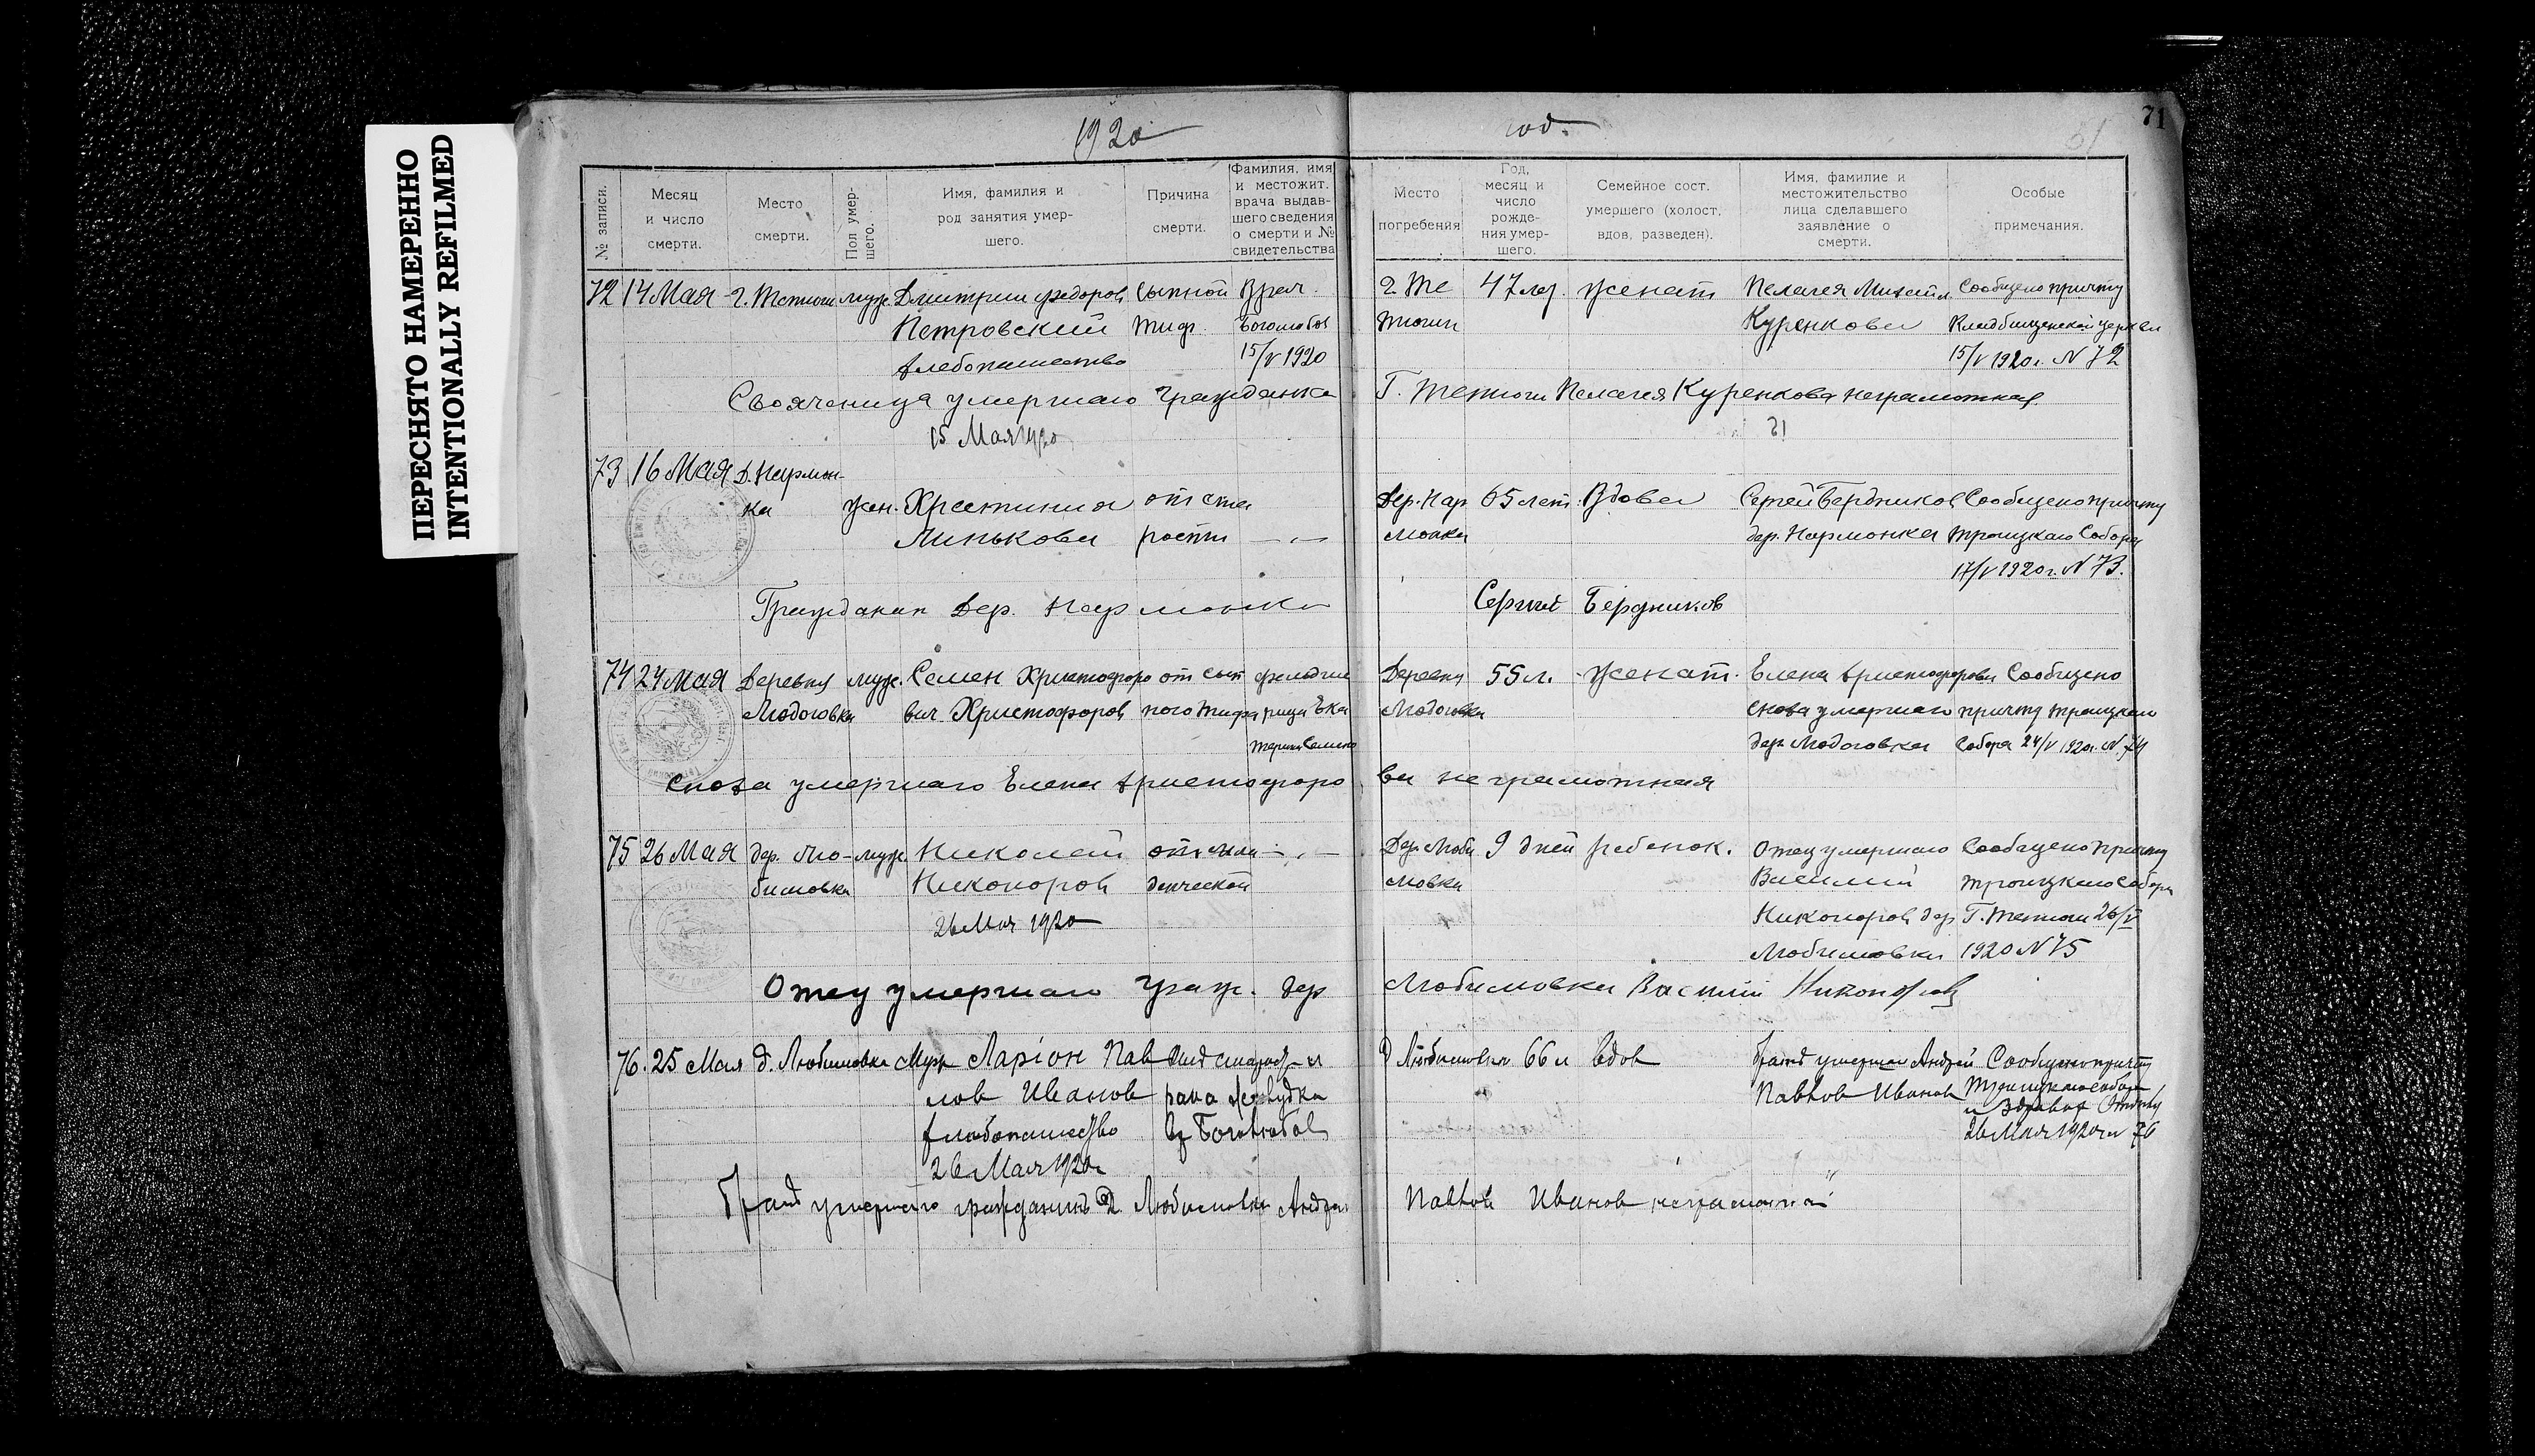 ПЕРЕСНЯТО НАМЕРЕННО
INTENTIONALLY REFILMED
1920 год.
71
№ записи.
Месяц и число смерти.
Место смерти.
Пол умершего.
Имя, фамилия и род занятия умершего.
Причина смерти.
Фамилия, имя и местожит. врача выдавшего сведения о смерти и № свидетельства
Место погребения
Год, месяц и число рождения умершего.
Семейное сост. умершего (холост, вдов, разведен).
Имя, фамилие и местожительство лица сделавшего заявление о смерти.
Особые примечания.
72 14 Мая г. Тетюши муж. Дмитрий Федоров сыпной Врач 2. Те 47 лет. женат Пелагея Михайл. Сообщено причту
Петровский тиф. Боголюбов тюши Куренкова Кладбищенской церкви
хлебопашество 15/V 1920 15/V 1920 г. N 72
Свояченица умершаго гражданка Г. Тетюши Пелагея Куренкова неграмотная
15 Мая 1920
73 16 Мая Д. Нармон-
ка жен. Християния от ста Дер. Нар 65 лет. Вдова Сергей Бердников Сообщено причту
Линькова рости — „ — монка дер. Нармонка Троицкаго Собора
17/V 1920 г. N 73.
Гражданин Дер. Нармонки Сергей Бердников
74 24 Мая Деревня муж. Семен Христофоро от сып фельдше Деревня 55 л. женат. Елена Христофорова Сообщено
Людоговка вич Христофоров ного тифа рица Ека Людоговка сноха умершаго причту Троицкаго
терина Семено дер. Людоговка Собора 24/V 1920 г. N. 74
Сноха умершаго Елена Христофоро ва не грамотная
75 26 Мая дер. Лю- муж. Николай от мла — „ — Дер. Люби 9 дней ребенок. Отец умершаго Сообщено причту
бимовка Никоноров денческой мовка Василий Троицкаго Собора
26 Мая 1920 Никоноров дер Г. Тетюши 26/V
Любимовки 1920 N 75
Отец умершаго граж. дер Любимовки Василий Никоноров
76. 25 Мая д. Любимовка Муж Ларіон Пав д Любимовка 66 л вдов брат умершаго Андрей Сообщено причту
лов Иванов рака желудка Павлов Иванов Троицкаго собора
хлебопашество Боголюбов и Здравот Отделу
26 Мая 1920 г 26 Мая 1920 г N 76
Брат умершего гражданин д. Любимовки Андрей Павлов Иванов неграмотной